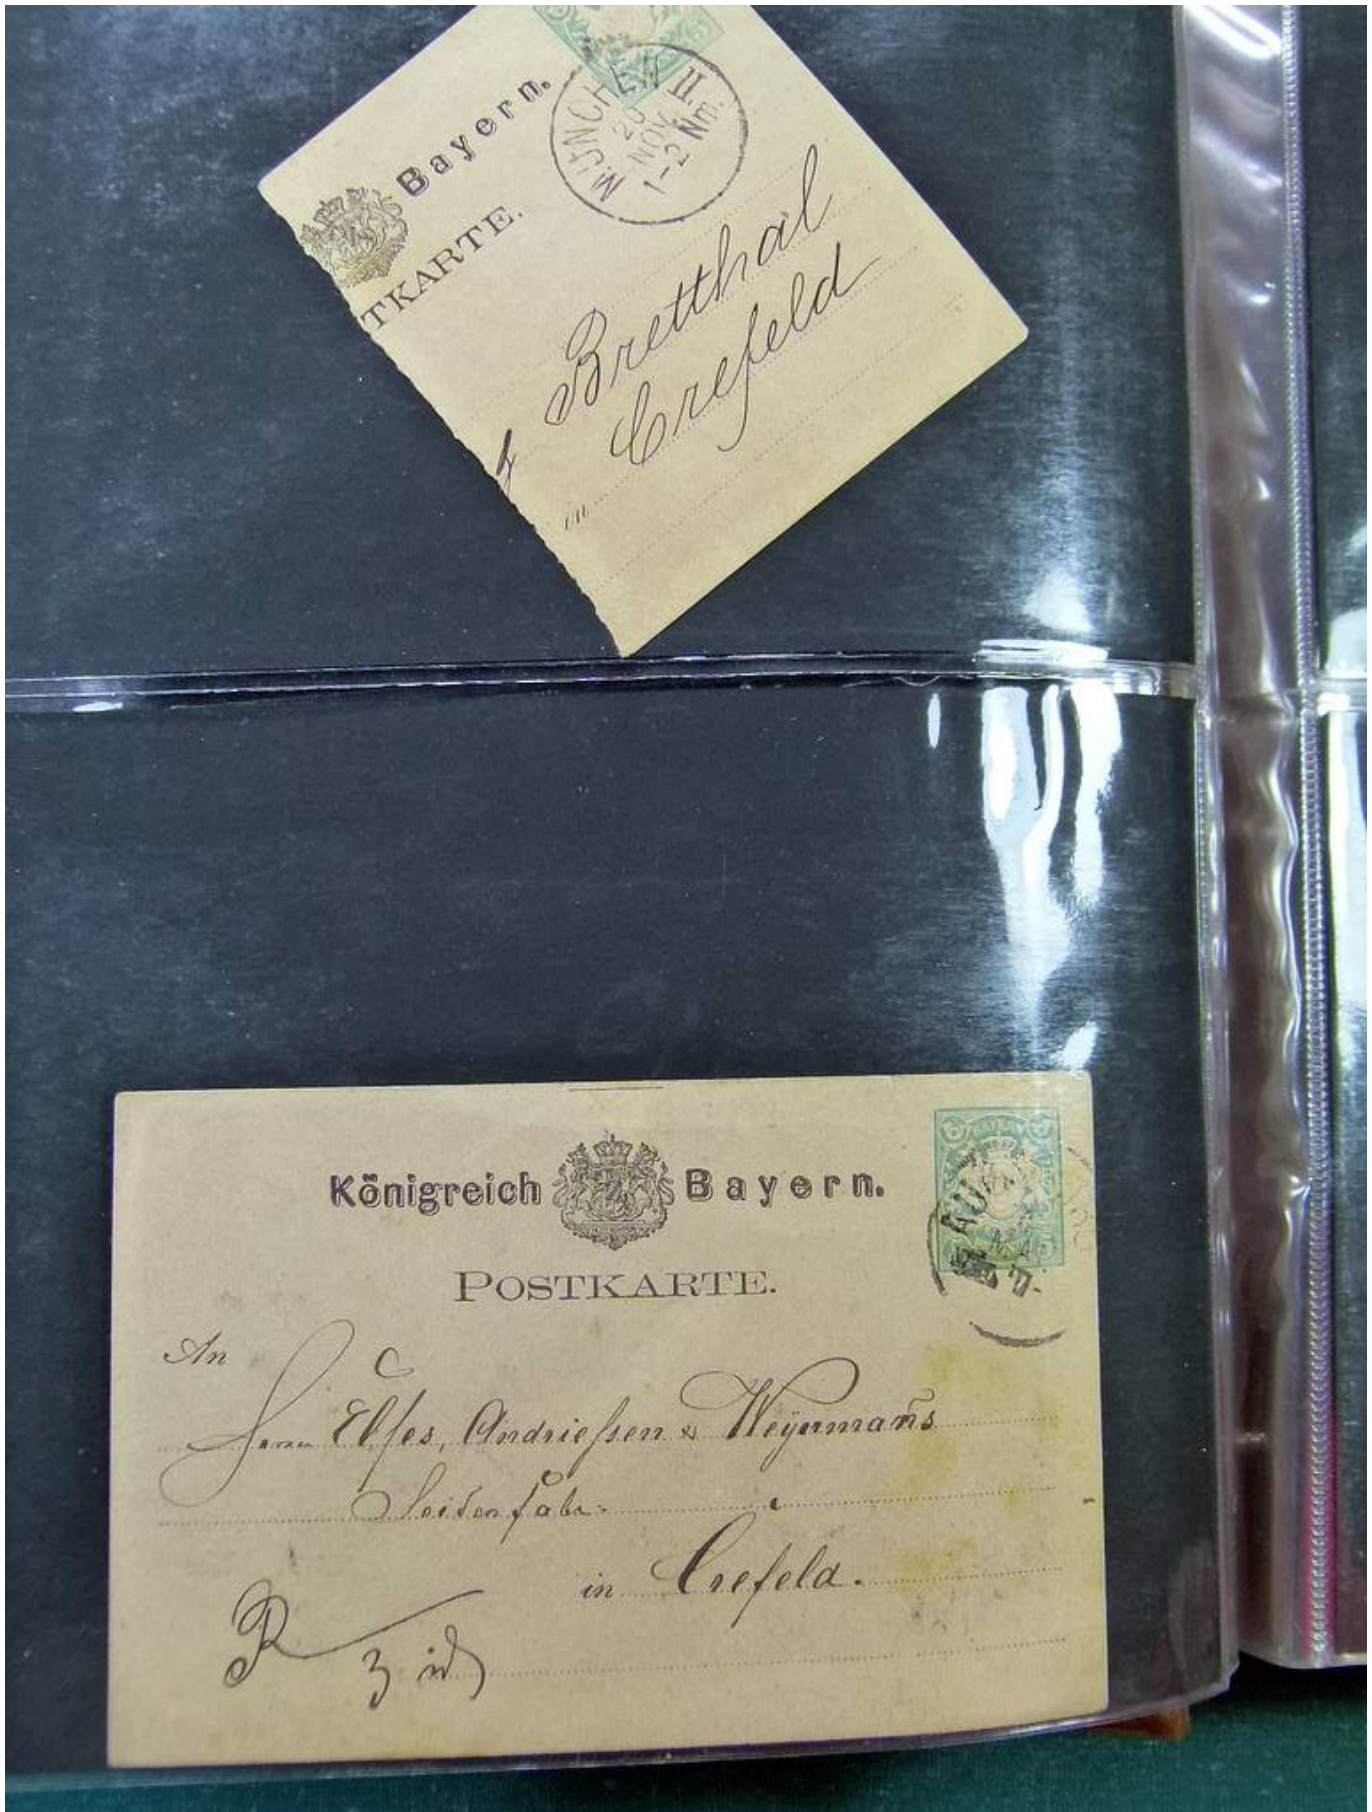 Bayern.
TKARTE.
MÜNCHEN II.
20
NOV.
1-2 Nm.
Bretthal
Crefeld
in
Königreich Bayern.
POSTKARTE.
BAYERN
An
Herrn Elfes, Andrießen & Weÿermañs
Seidenfabr:
in Crefeld.